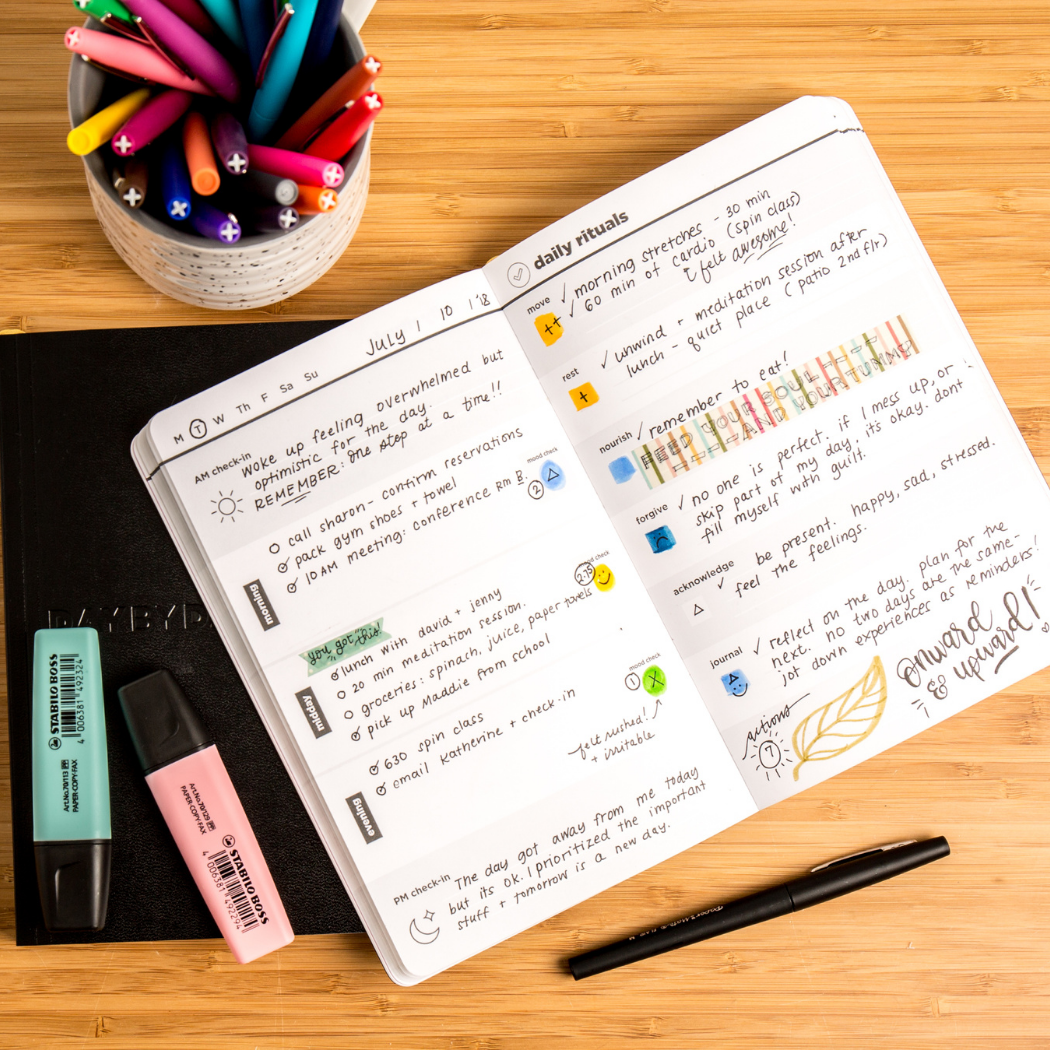 JULY 1 10 1'18
M T W Th F Sa Su
AM check-in
Woke up feeling overwhelmed but
optimistic for the day.
REMEMBER: one step at a time!!
call sharon - confirm reservations
pack gym shoes + towel
10AM meeting: conference Rm B.
mood check
2
morning
you got this!
lunch with david + jenny
20 min meditation session.
groceries: spinach, juice, paper towels
pick up Maddie from school
mood check
2.75
midday
630 spin class
email Katherine + check-in
mood check
1
felt rushed!
+ irritable
evening
PM check-in
The day got away from me today
but its ok. I prioritized the important
stuff + tomorrow is a new day.
daily rituals
move
++
✓ morning stretches - 30 min
✓ 60 min of cardio (spin class)
felt awesome!
rest
+
✓ unwind + meditation session after
lunch - quiet place (patio 2nd flr)
nourish
✓ remember to eat!
FEED YOUR SOUL
AND YOUR TUMMY
forgive
✓ no one is perfect. if I mess up, or
skip part of my day, it's okay. dont
fill myself with guilt.
acknowledge
✓ be present. happy, sad, stressed.
feel the feelings.
journal
✓ reflect on the day. plan for the
next. no two days are the same-
jot down experiences as reminders!
actions
7
onward
& upward!
DAYBYD
STABILO BOSS
4 006381 492324
Art.No.70/113
PAPER-COPY-FAX
STABILO BOSS
4 006381 492294
Art.No.70/129
PAPER-COPY-FAX